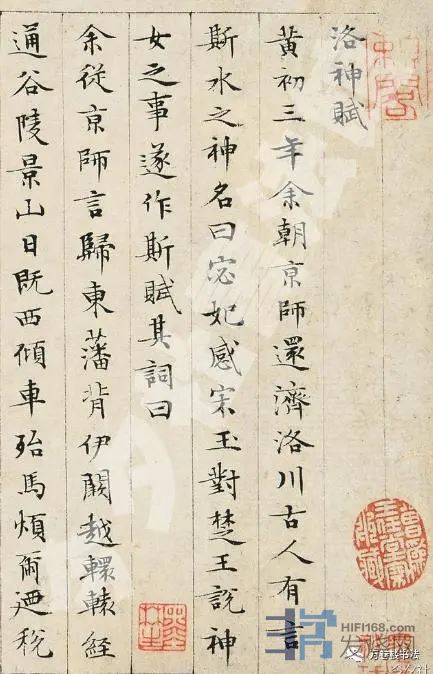 洛神賦
黄初三年余朝亰師還濟洛川古人有言
斯水之神名曰宓妃感宋玉對楚王說神
女之事遂作斯賦其詞曰
余從亰師言歸東藩背伊闕越轘轅経
通谷陵景山日既西傾車殆馬煩爾迺稅
HIFI168.com